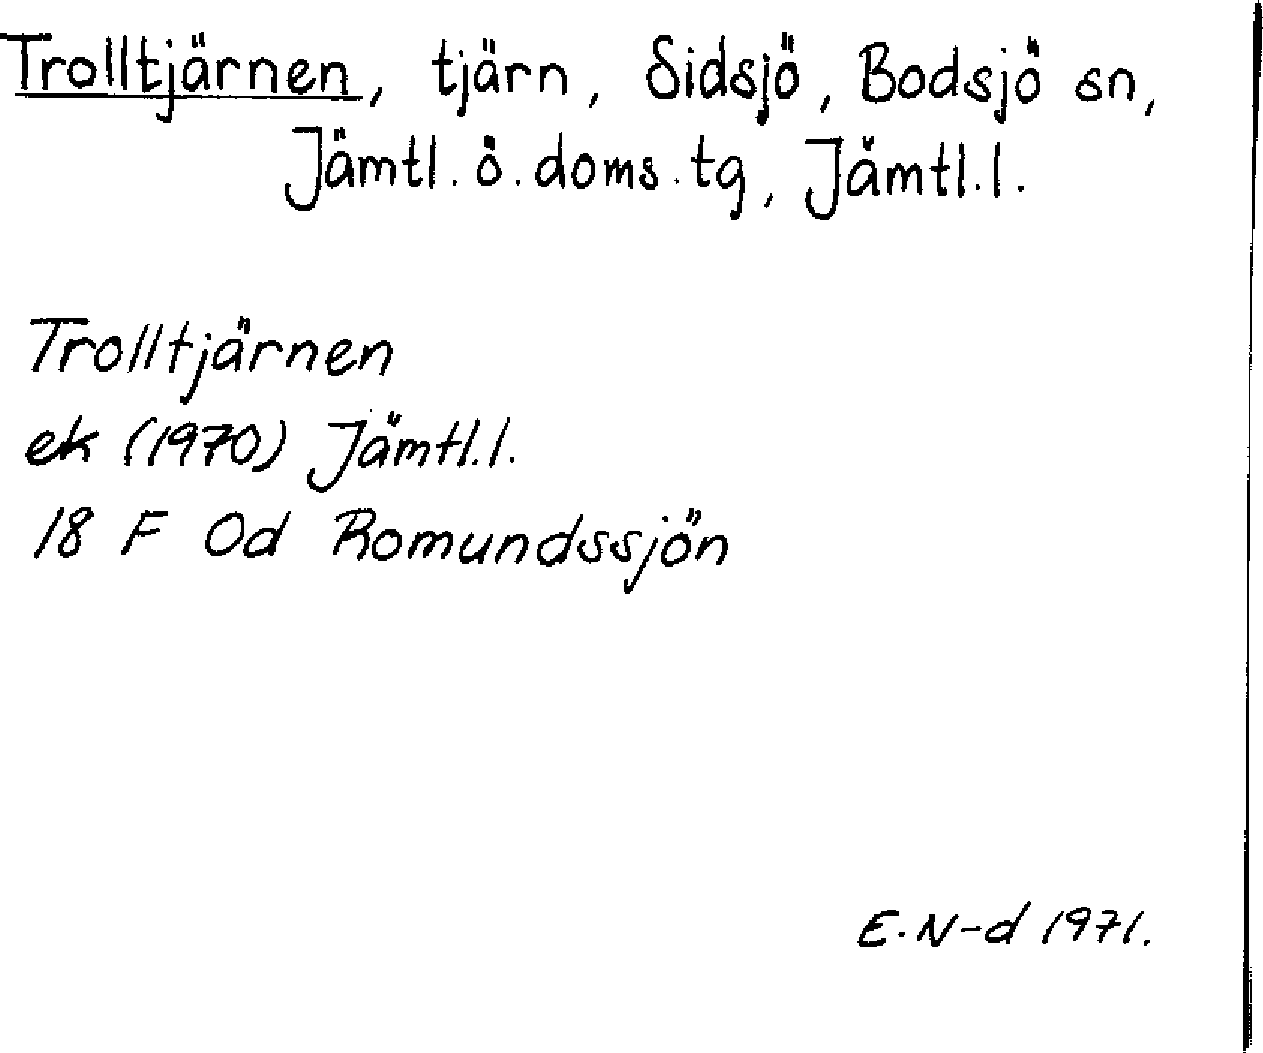 Trolltjärnen, tjärn, Sidsjö, Bodsjö sn,
Jämtl. ö. doms. tg, Jämtl. l.
Trolltjärnen
ek (1970) Jämtl. l.
18 F 0d Romundssjön
E. N-d 1971.